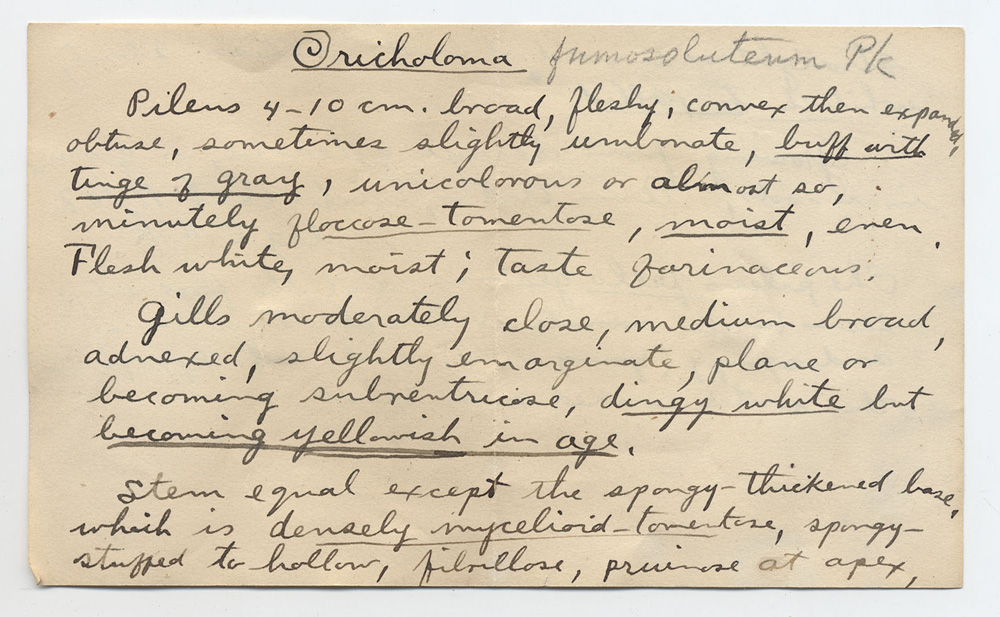 Tricholoma fumosoluteum Pk
Pileus 4-10 cm. broad, fleshy, convex then expanded,
obtuse, sometimes slightly umbonate, buff with
tinge of gray, unicolorous or almost so,
minutely floccose-tomentose, moist, even.
Flesh white, moist; taste farinaceous.
Gills moderately close, medium broad,
adnexed, slightly emarginate, plane or
becoming subventricose, dingy white but
becoming yellowish in age.
Stem equal except the spongy-thickened base,
which is densely mycelioid-tomentose, spongy-
stuffed to hollow, fibrillose, pruinose at apex,